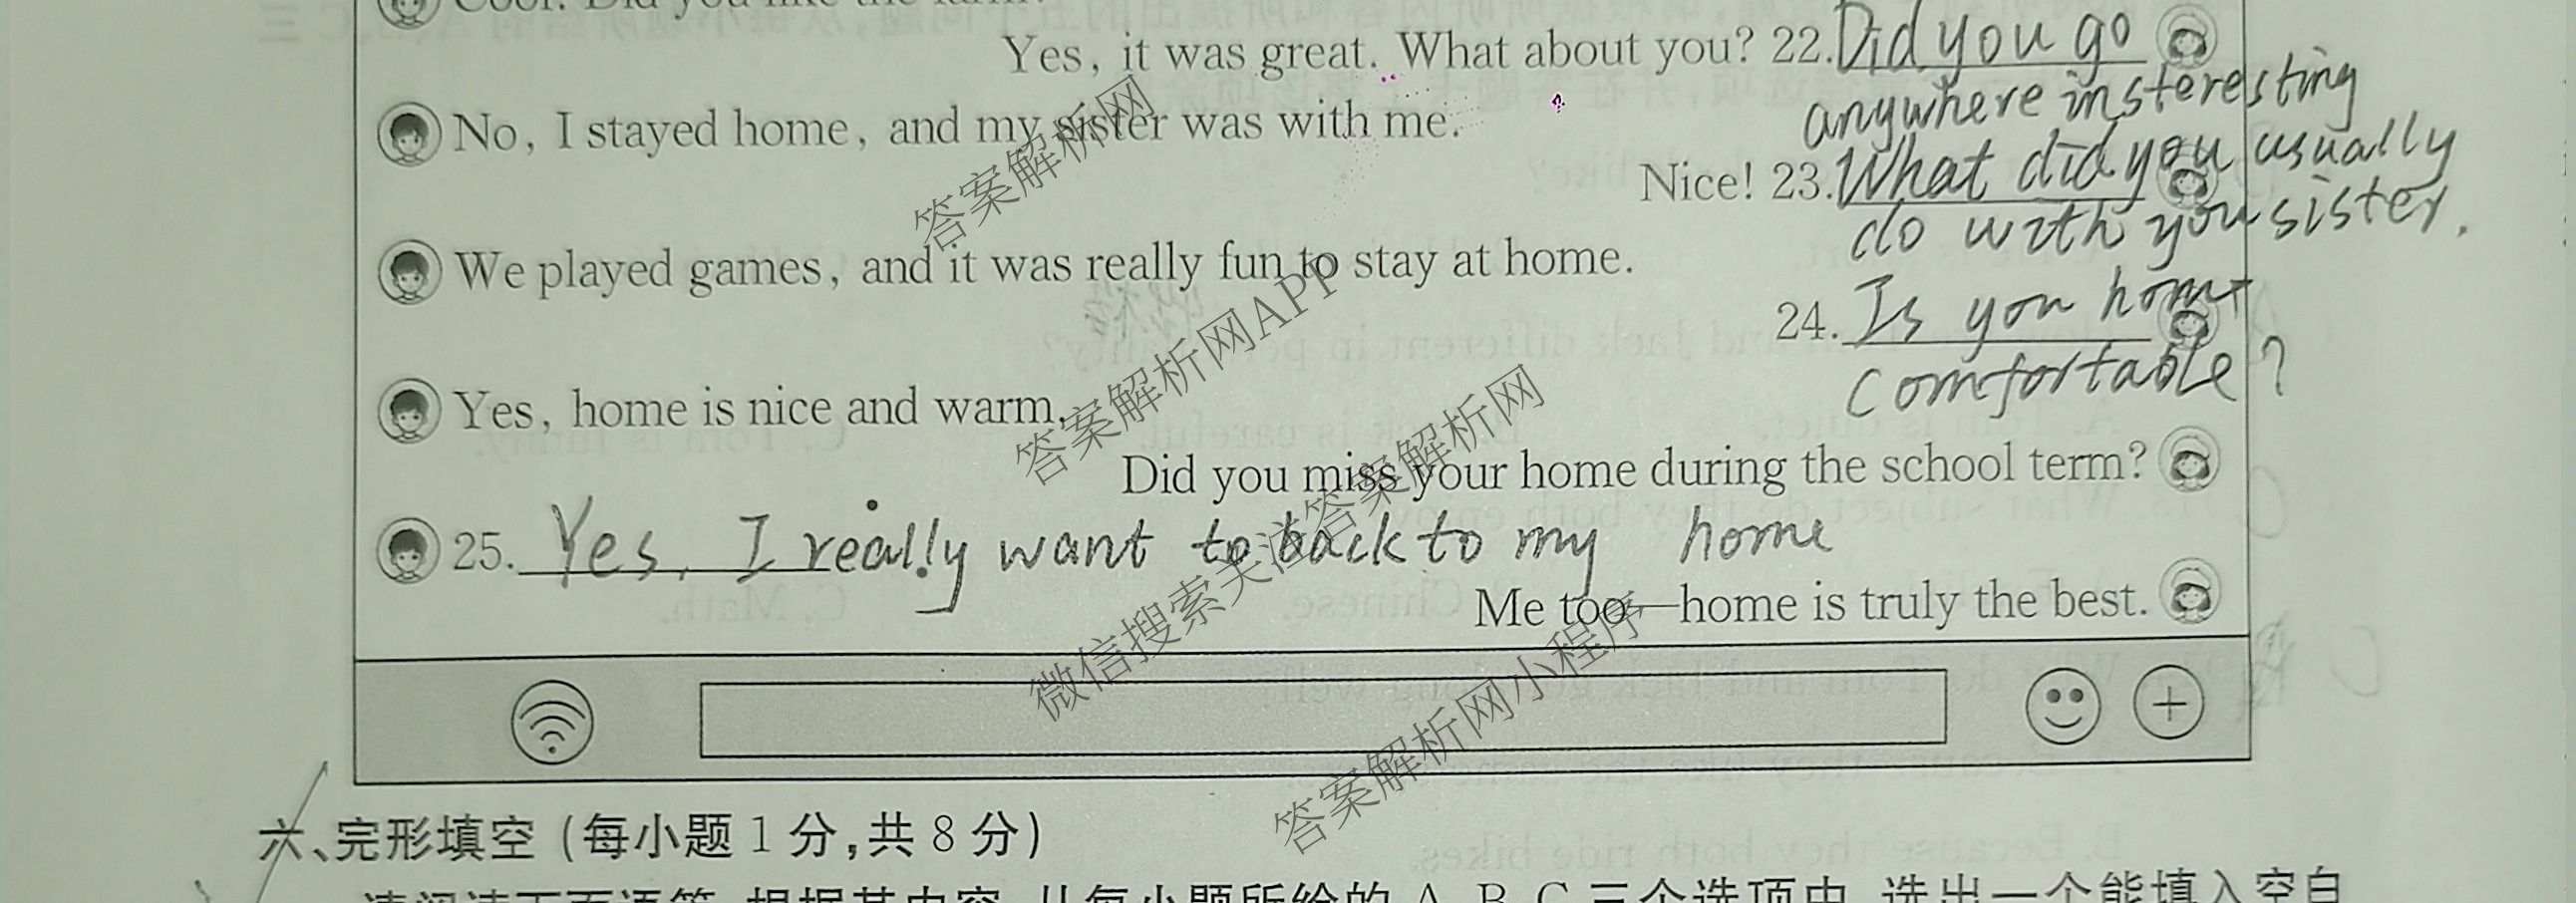 Cool! Did you like the farm?
Yes, it was great. What about you? 22. Did you go
anywhere insteresting
No, I stayed home, and my sister was with me.
Nice! 23. What did you usually
do with you sister.
We played games, and it was really fun to stay at home.
24. Is you home
comfortable?
Yes, home is nice and warm.
Did you miss your home during the school term?
25. Yes, I really want to back to my home
Me too—home is truly the best.
六、完形填空 (每小题 1 分,共 8 分)
请阅读下面语篇,根据其内容,从每小题所给的 A、B、C 三个选项中,选出一个能填入空白
答案解析网
答案解析网APP
微信搜索关注答案解析网
答案解析网小程序